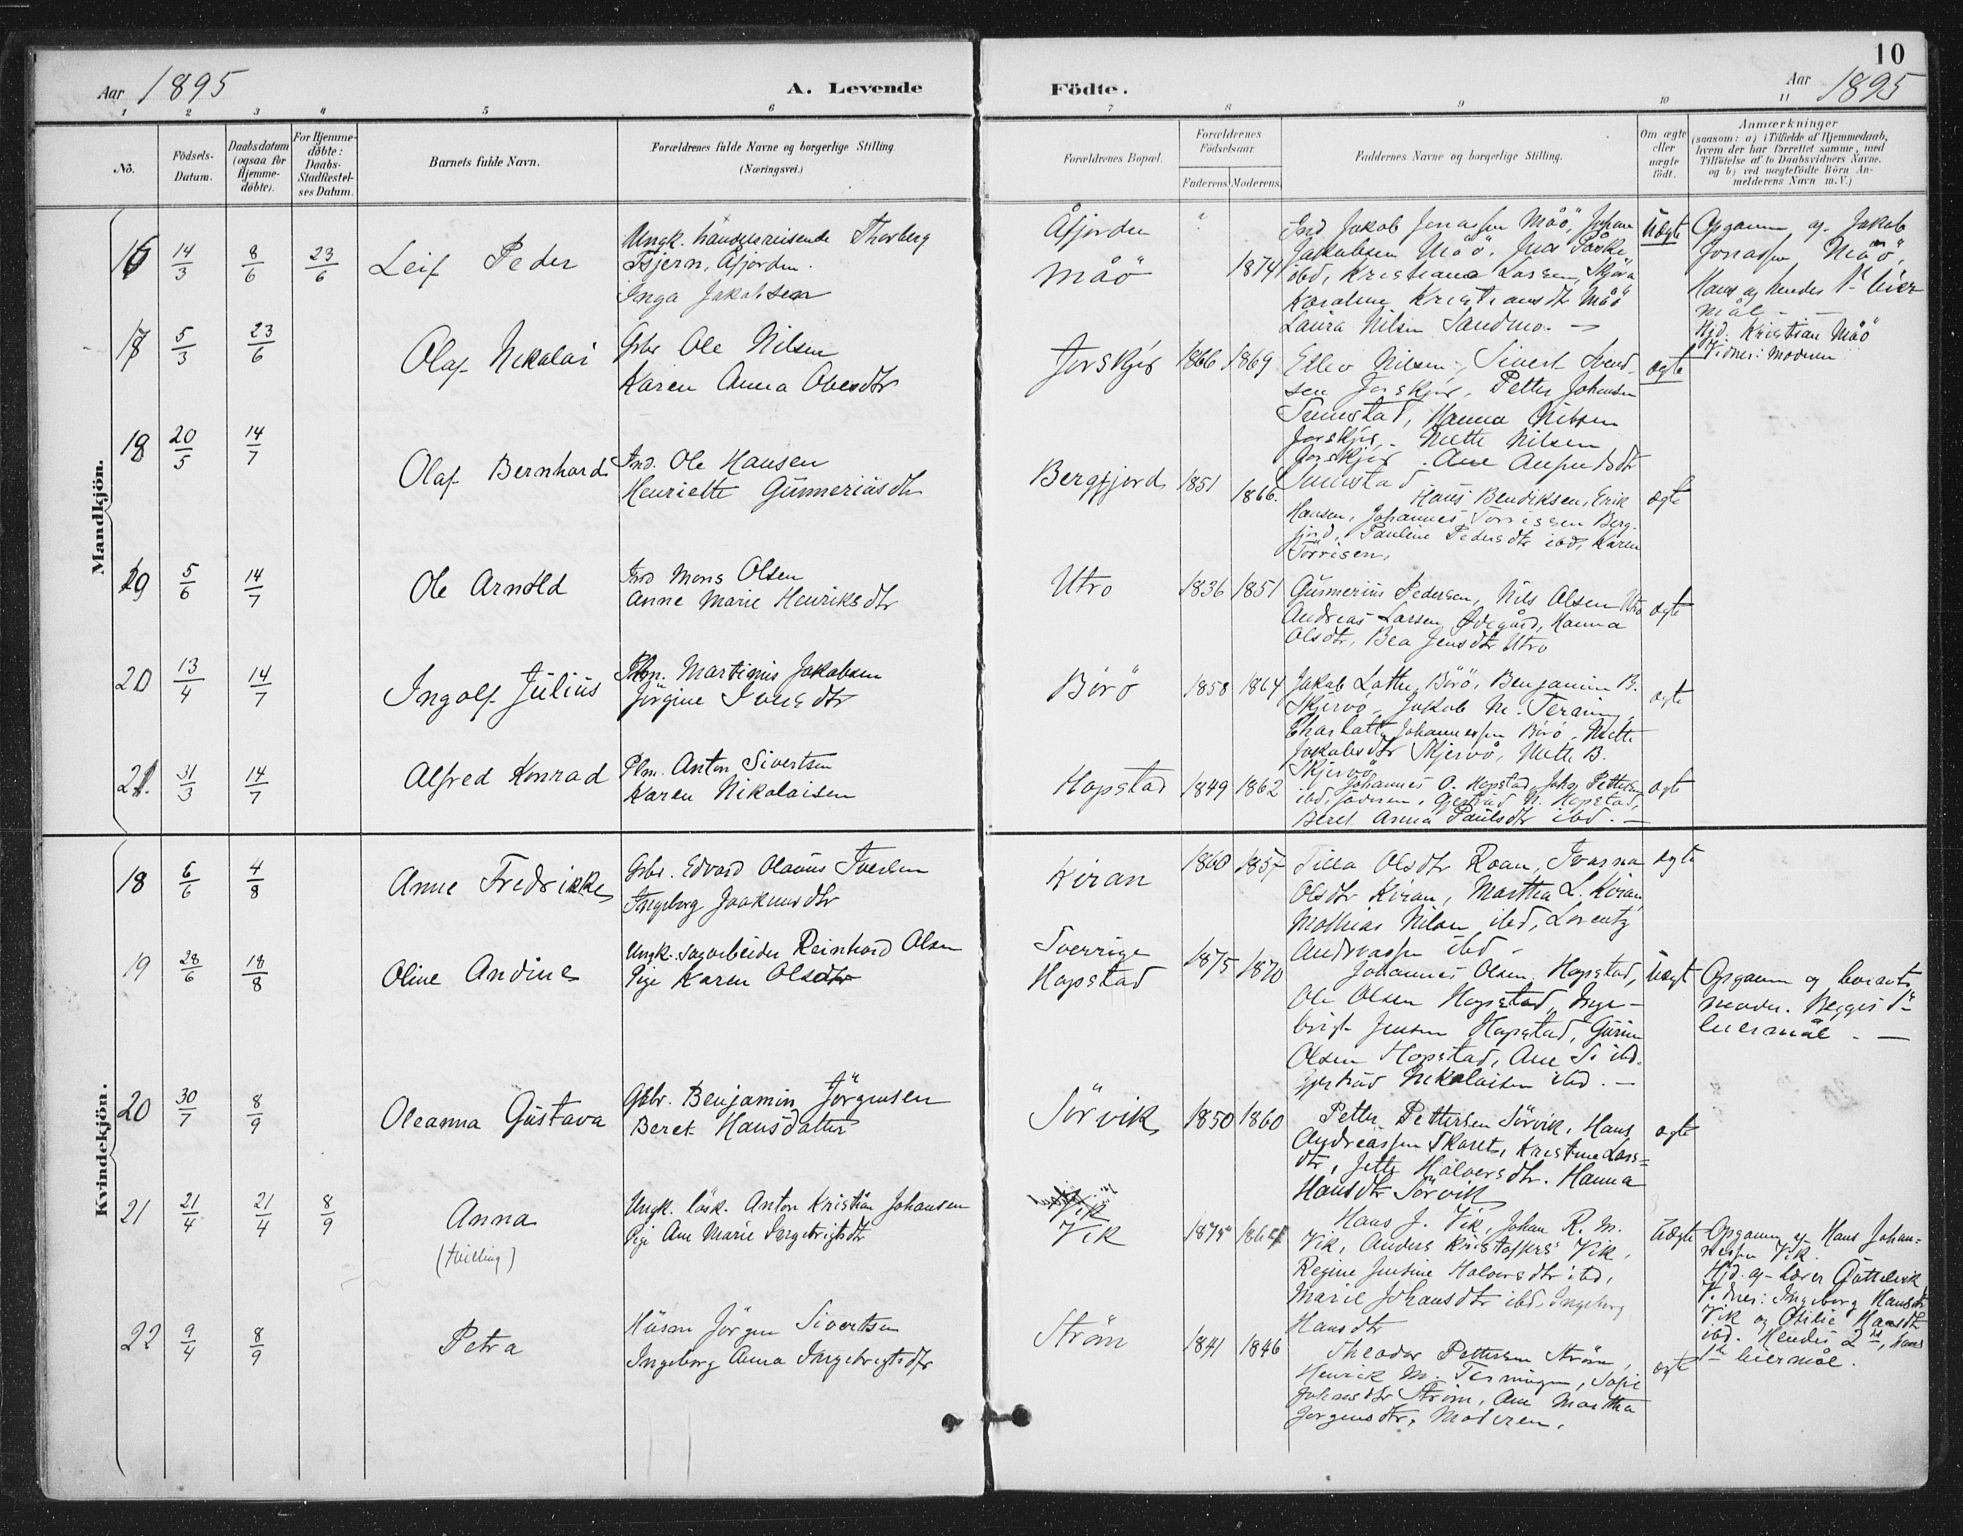 10
Aar 1895
A. Levende
Födte.
Aar 1895
1 2 3 4 5 6 7 8 9 10 11
No.
Födsels-
Datum.
Daabsdatum
(ogsaa for
Hjemme-
döbte).
For Hjemme-
döbte:
Daabs-
Stadfæstel-
ses Datum.
Barnets fulde Navn.
Forældrenes fulde Navne og borgerlige Stilling
(Næringsvei.)
Forældrenes Bopæl.
Forældrenes
Födselsaar.
Faderens
Moderens
Faddernes Navne og borgerlig Stilling.
Om ægte
eller
uægte
födt.
Anmærkninger
(saasom: a) i Tilfælde af Hjemmedaab,
hvem der har forrettet samme, med
Tilföielse af to Daabsvidners Navne.
og b) ved uægtefödte Börn An-
melderens Navn m.V.)
Mandkjön.
16 14/3 8/6 23/6 Leif Peder
Ungk. handelsreisende Thorberg
Tsjern, Åfjorden.
Inga Jakobsen
Åfjorden
Måö
1874
Ind Jakob Jonassen Måö, Johan
Jakobsen Måö,
ibd, Kristiana Larsen,
Karoline Kristiansdtr Måö
Laura Nilsen Sandmo. —
Uægte
Opgaven af Jakob
Jonassen Måö,
Hans og hendes 1ste leier
mål —
Hjd. Kristian Måö
Vidner: Moderen
17 5/3 23/6 Olaf Nikolai
Gbr Ole Nilsen
Karen Anna Olesdtr
Jorskjör 1866 1869
Ellev Nilsen, Sivert Svend-
sen Jorskjör, Petter Johansen
Sumstad, Hanna Nilsen
Jorskjör, Mette Nilsen
Jorskjör, Ane
Sumstad
ægte
18 20/5 14/7 Olaf Bernhard
Ind. Ole Hansen
Henriette Gunneriusdtr
Bergfjord 1851 1866.
Hans Bendiksen, Erik
Hansen, Johannes Torrissen Berg-
fjord, Pauline Pedersdtr ibd, Karen
Torrisen.
ægte
19 5/6 14/7 Ole Arnold
Ind Mons Olsen
Anne Marie Henriksdtr
Utro 1836 1851
Gunnerius Pedersen, Nils Olsen Utro
Andreas Larsen Ödegård, Hanna
Olsdtr, Bea Jensdtr Utro
ægte
20 13/4 14/7 Ingolf Julius
Plm. Martinus Jakobsen
Jörgine Iversdtr
Börö 1858 1864
Jakob Lather Börö, Benjamin B.
Skjervö, Jakob M. Terning,
Johannessen Börö, Mette
Jakobsdtr Skjervö, Mette B.
Skjervö
ægte
21. 31/3 14/7 Alfred Konrad
Plm. Anton Sivertsen
Karen Nikolaisen
Hopstad 1849 1862
Johannes O. Hopstad, Johan Pettersen
ibd, faderen, Gjertrud N. Hopstad,
Beret Anna Paulsdtr ibd. —
ægte
Kvindekjön.
18 6/6 4/8 Anne Fredrikke
Gbr. Edvard Olaus Iversen
Ingeborg Joakimsdtr
Kiran 1860 1857
Tilla Olsdtr Roan,
Olsdtr Kiran, Martha L. Kiran
Mathias Nilsen ibd, Lorentz
Andreassen ibd —
ægte
19 28/6 18/8 Oline Andine
Ungk. sagarbeider Reinhard Olsen
Pige Karen Olsdtr
Sverrige
Hopstad
1875 1870
Johannes Olsen Hopstad,
Ole Olsen Hopstad, Inge-
brigt Jensen Hopstad,
Olsen Hopstad, Ane S. ibd.
Gjertrud Nikolaisen ibd. —
Uægt
Opgaven og
moder. Begges 1ste
leiermål. —
20 30/7 8/9 Oleanna Gustava
Gbr. Benjamin Jörgensen
Beret Hansdatter
Sörvik 1850 1860
Petter Pettersen Sörvik, Hans
Andreassen Skaret, Kristine Lars-
dtr, Jette Halversdtr. Hanna
Hansdtr Sörvik
ægte
21 21/4 21/4 8/9 Anna
(tvilling)
Ungk. lösk. Anton Kristian Johansen
Pige Ane Marie Ingebrigtsdtr
Vik
Vik
1875 1864
Hans J. Vik, Johan R. M.
Vik, Anders Kristoffers Vik,
Regine Jensine Halversdtr ibd,
Marie Johansdtr ibd, Ingeborg
Hansdtr
Uægte
Opgaven af Hans Johan-
nessen Vik.
Hjd. af lærer
Vidner: Ingeborg Hansdtr
Vik og Otilie Hansdtr
ibd. Hendes 2det, hans
1ste leiermål.
22 9/4 8/9 Petra
Husm Jörgen Sivertsen
Ingeborg Anna Ingebrigtsdtr
Ström 1841 1846
Theodor Pettersen Ström,
Henrik M. Terningen, Sofie
Johansdtr Ström, Ane Martha
Jörgensdtr, Moderen.
ægte